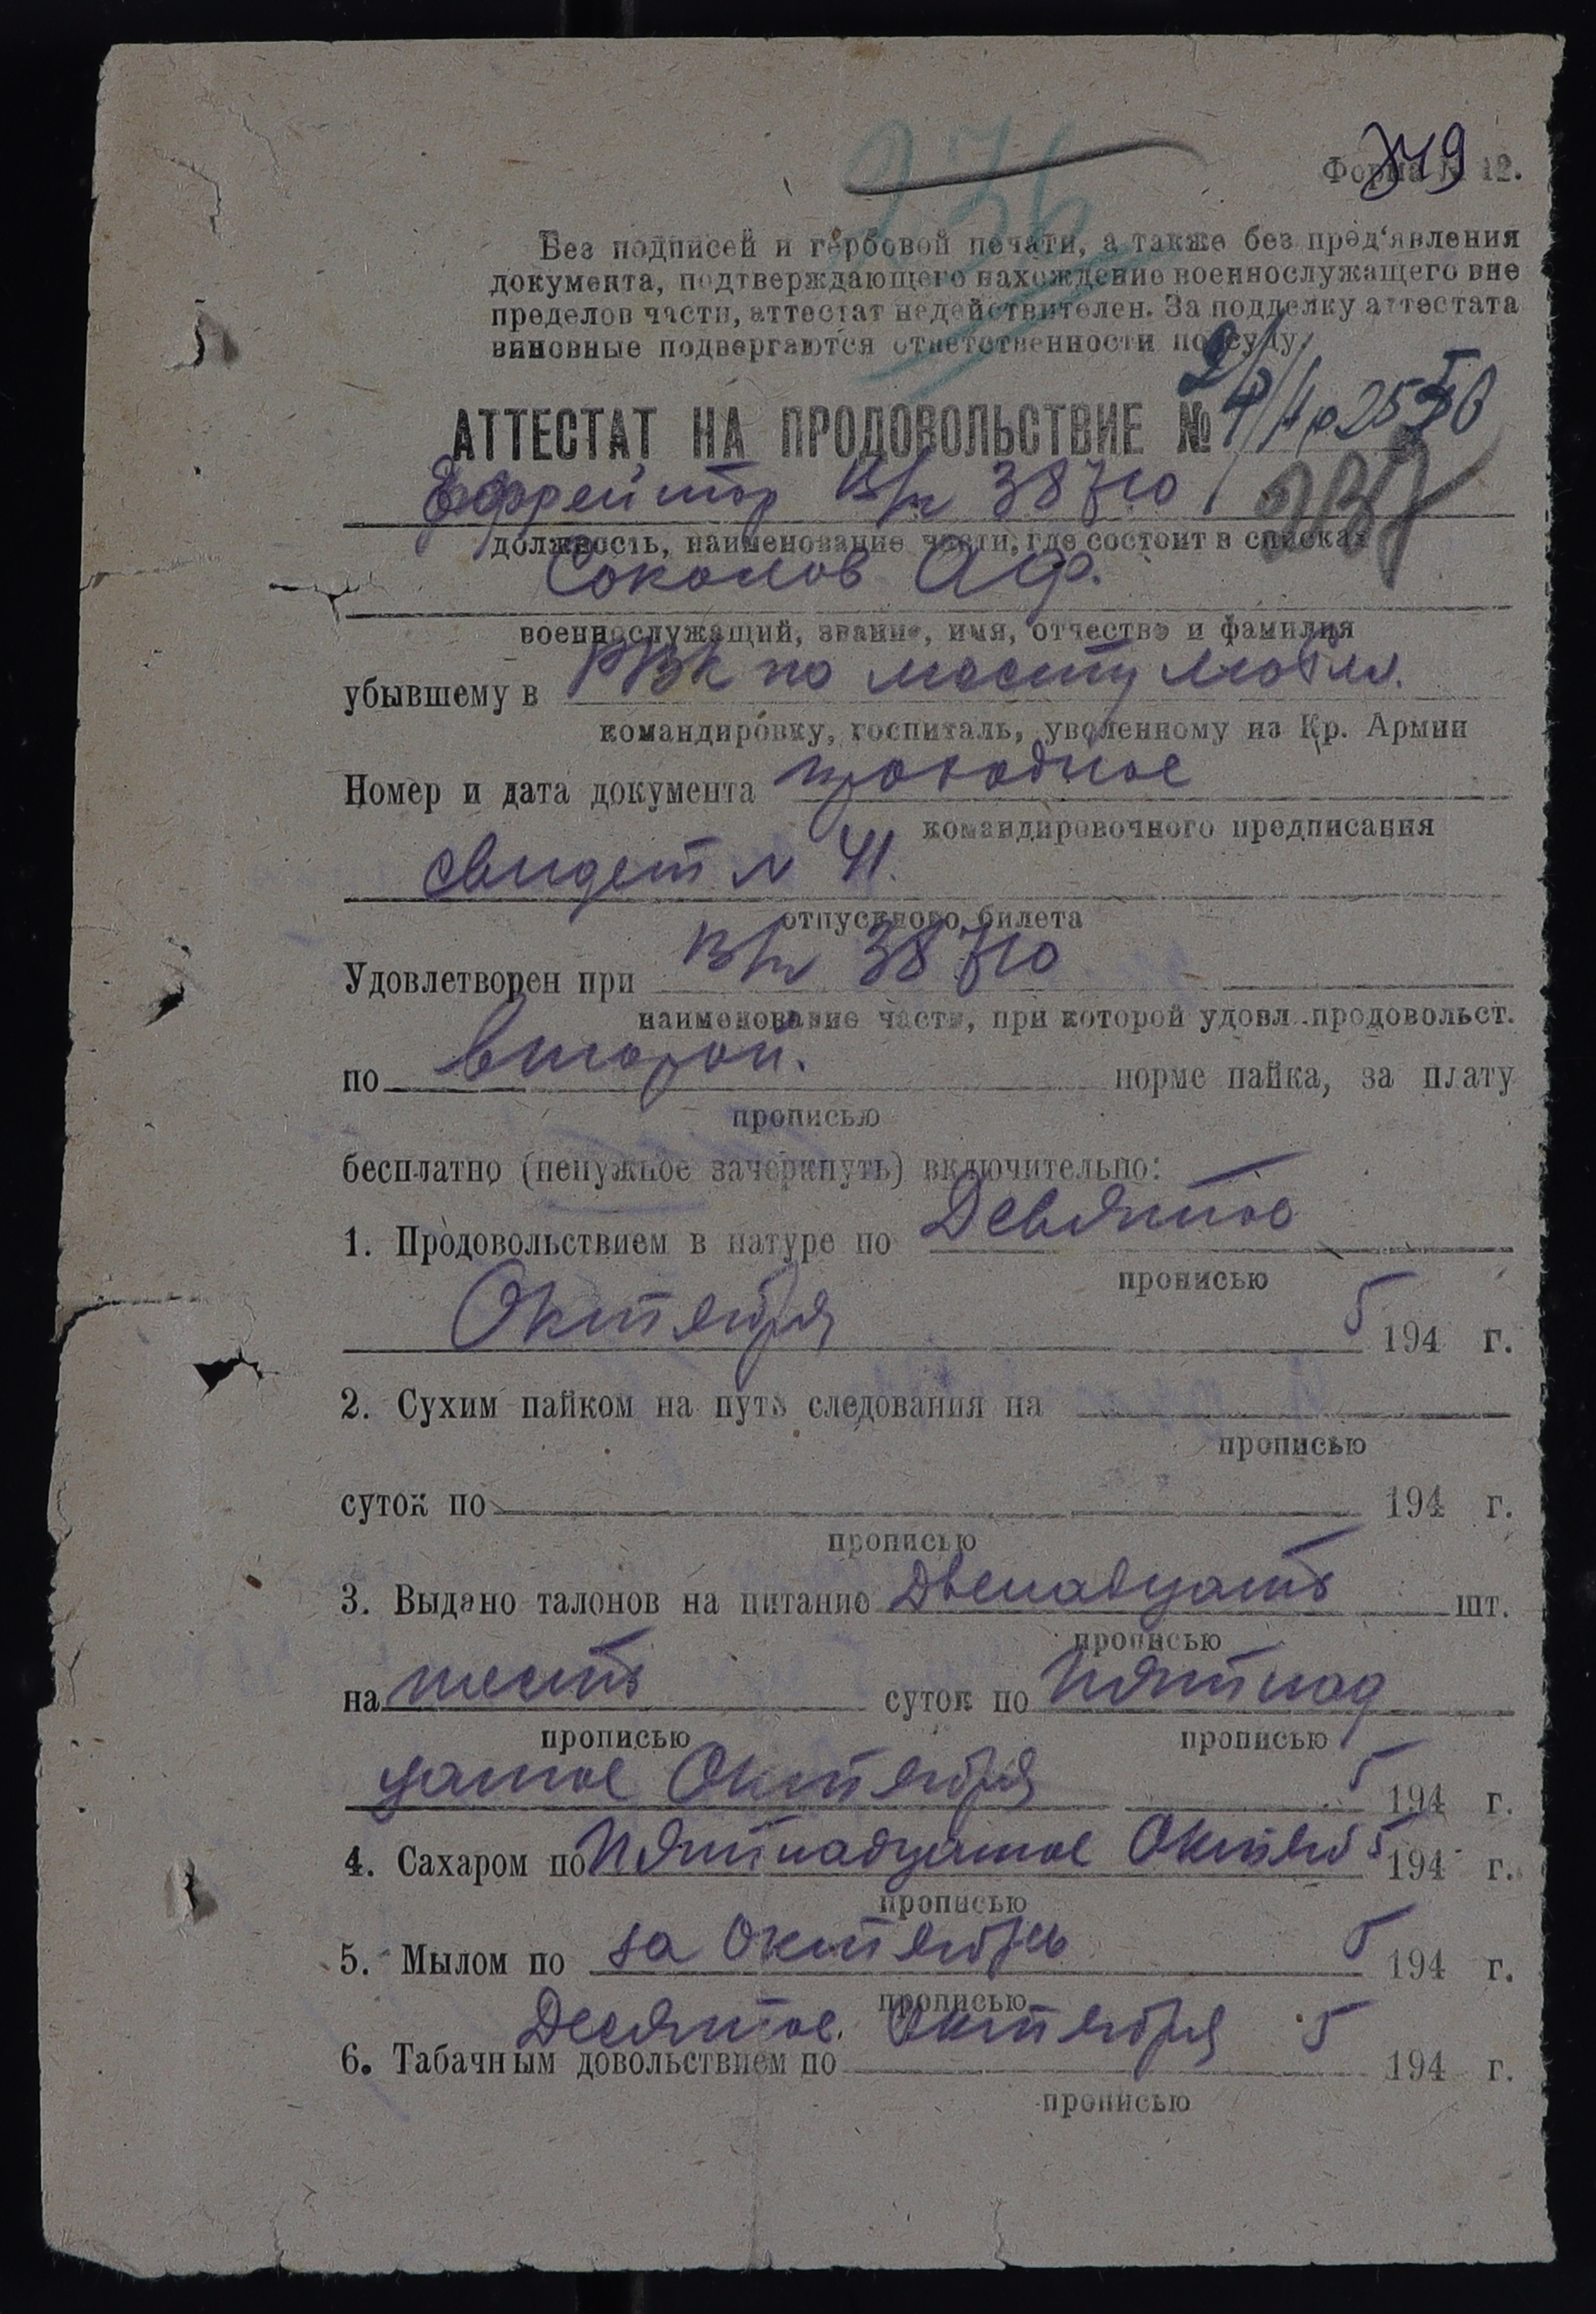 236
Форма № 12.
Без подписей и гербовой печати, а также без пред‘явления
документа, подтверждающего нахождение военнослужащего вне
пределов части, аттестат недействителен. За подделку аттестата
виновные подвергаются ответственности по суду.
АТТЕСТАТ НА ПРОДОВОЛЬСТВИЕ №
Ефрейтор В/ч 38710
должность, наименование части, где состоит в списках
Соколов А Ф.
военнослужащий, звание, имя, отчество и фамилия
убывшему в РВК по месту
командировку, госпиталь, уволенному из Кр. Армии
Номер и дата документа проходное
командировочного предписания
свидет N 41.
отпускного билета
Удовлетворен при В/ч 38710
наименование части, при которой удовл. продовольст.
по второй. норме пайка, за плату
прописью
бесплатно (ненужное зачеркнуть) включительно:
1. Продовольствием в натуре по Девятое
прописью
Октября 5 194 г.
2. Сухим пайком на путь следования на
прописью
суток по 194 г.
прописью
3. Выдано талонов на питание Двенадцать шт.
прописью
на шесть суток по Пятнад
прописью прописью
цатое Октября 5 194 г.
4. Сахаром по Пятнадцатое Октяб 5 194 г.
прописью
5. Мылом по за Октябрь 5 194 г.
прописью
Десятое Октября 5
6. Табачным довольствием по 194 г.
прописью